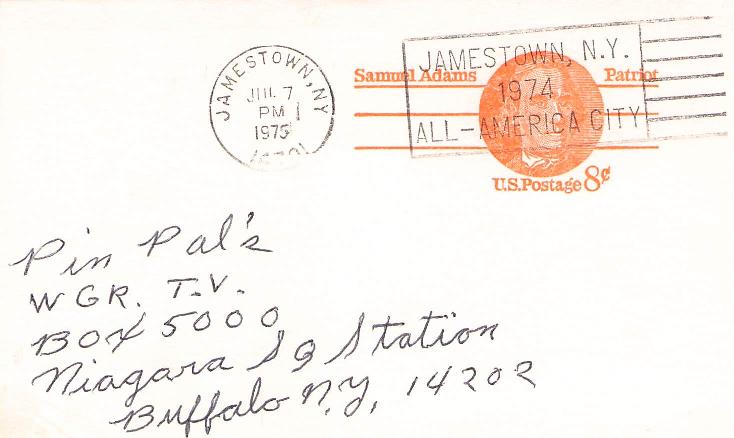 JAMESTOWN, NY
JUL 7
PM
1975
JAMESTOWN, N.Y.
1974
ALL-AMERICA CITY
Samuel Adams Patriot
U.S.Postage 8¢
Pin Pal's
WGR. T.V.
BOX 5000
Niagara Sq Station
Buffalo N.Y, 14202